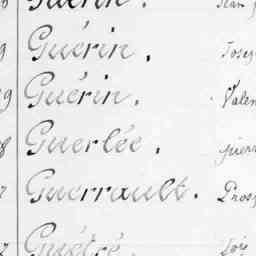 Guérin. Jean
9 Guérin. Josep
9 Guérin. Valen
8 Guerlée. pierr
7 Guerrault. Prosp
7 Guétré